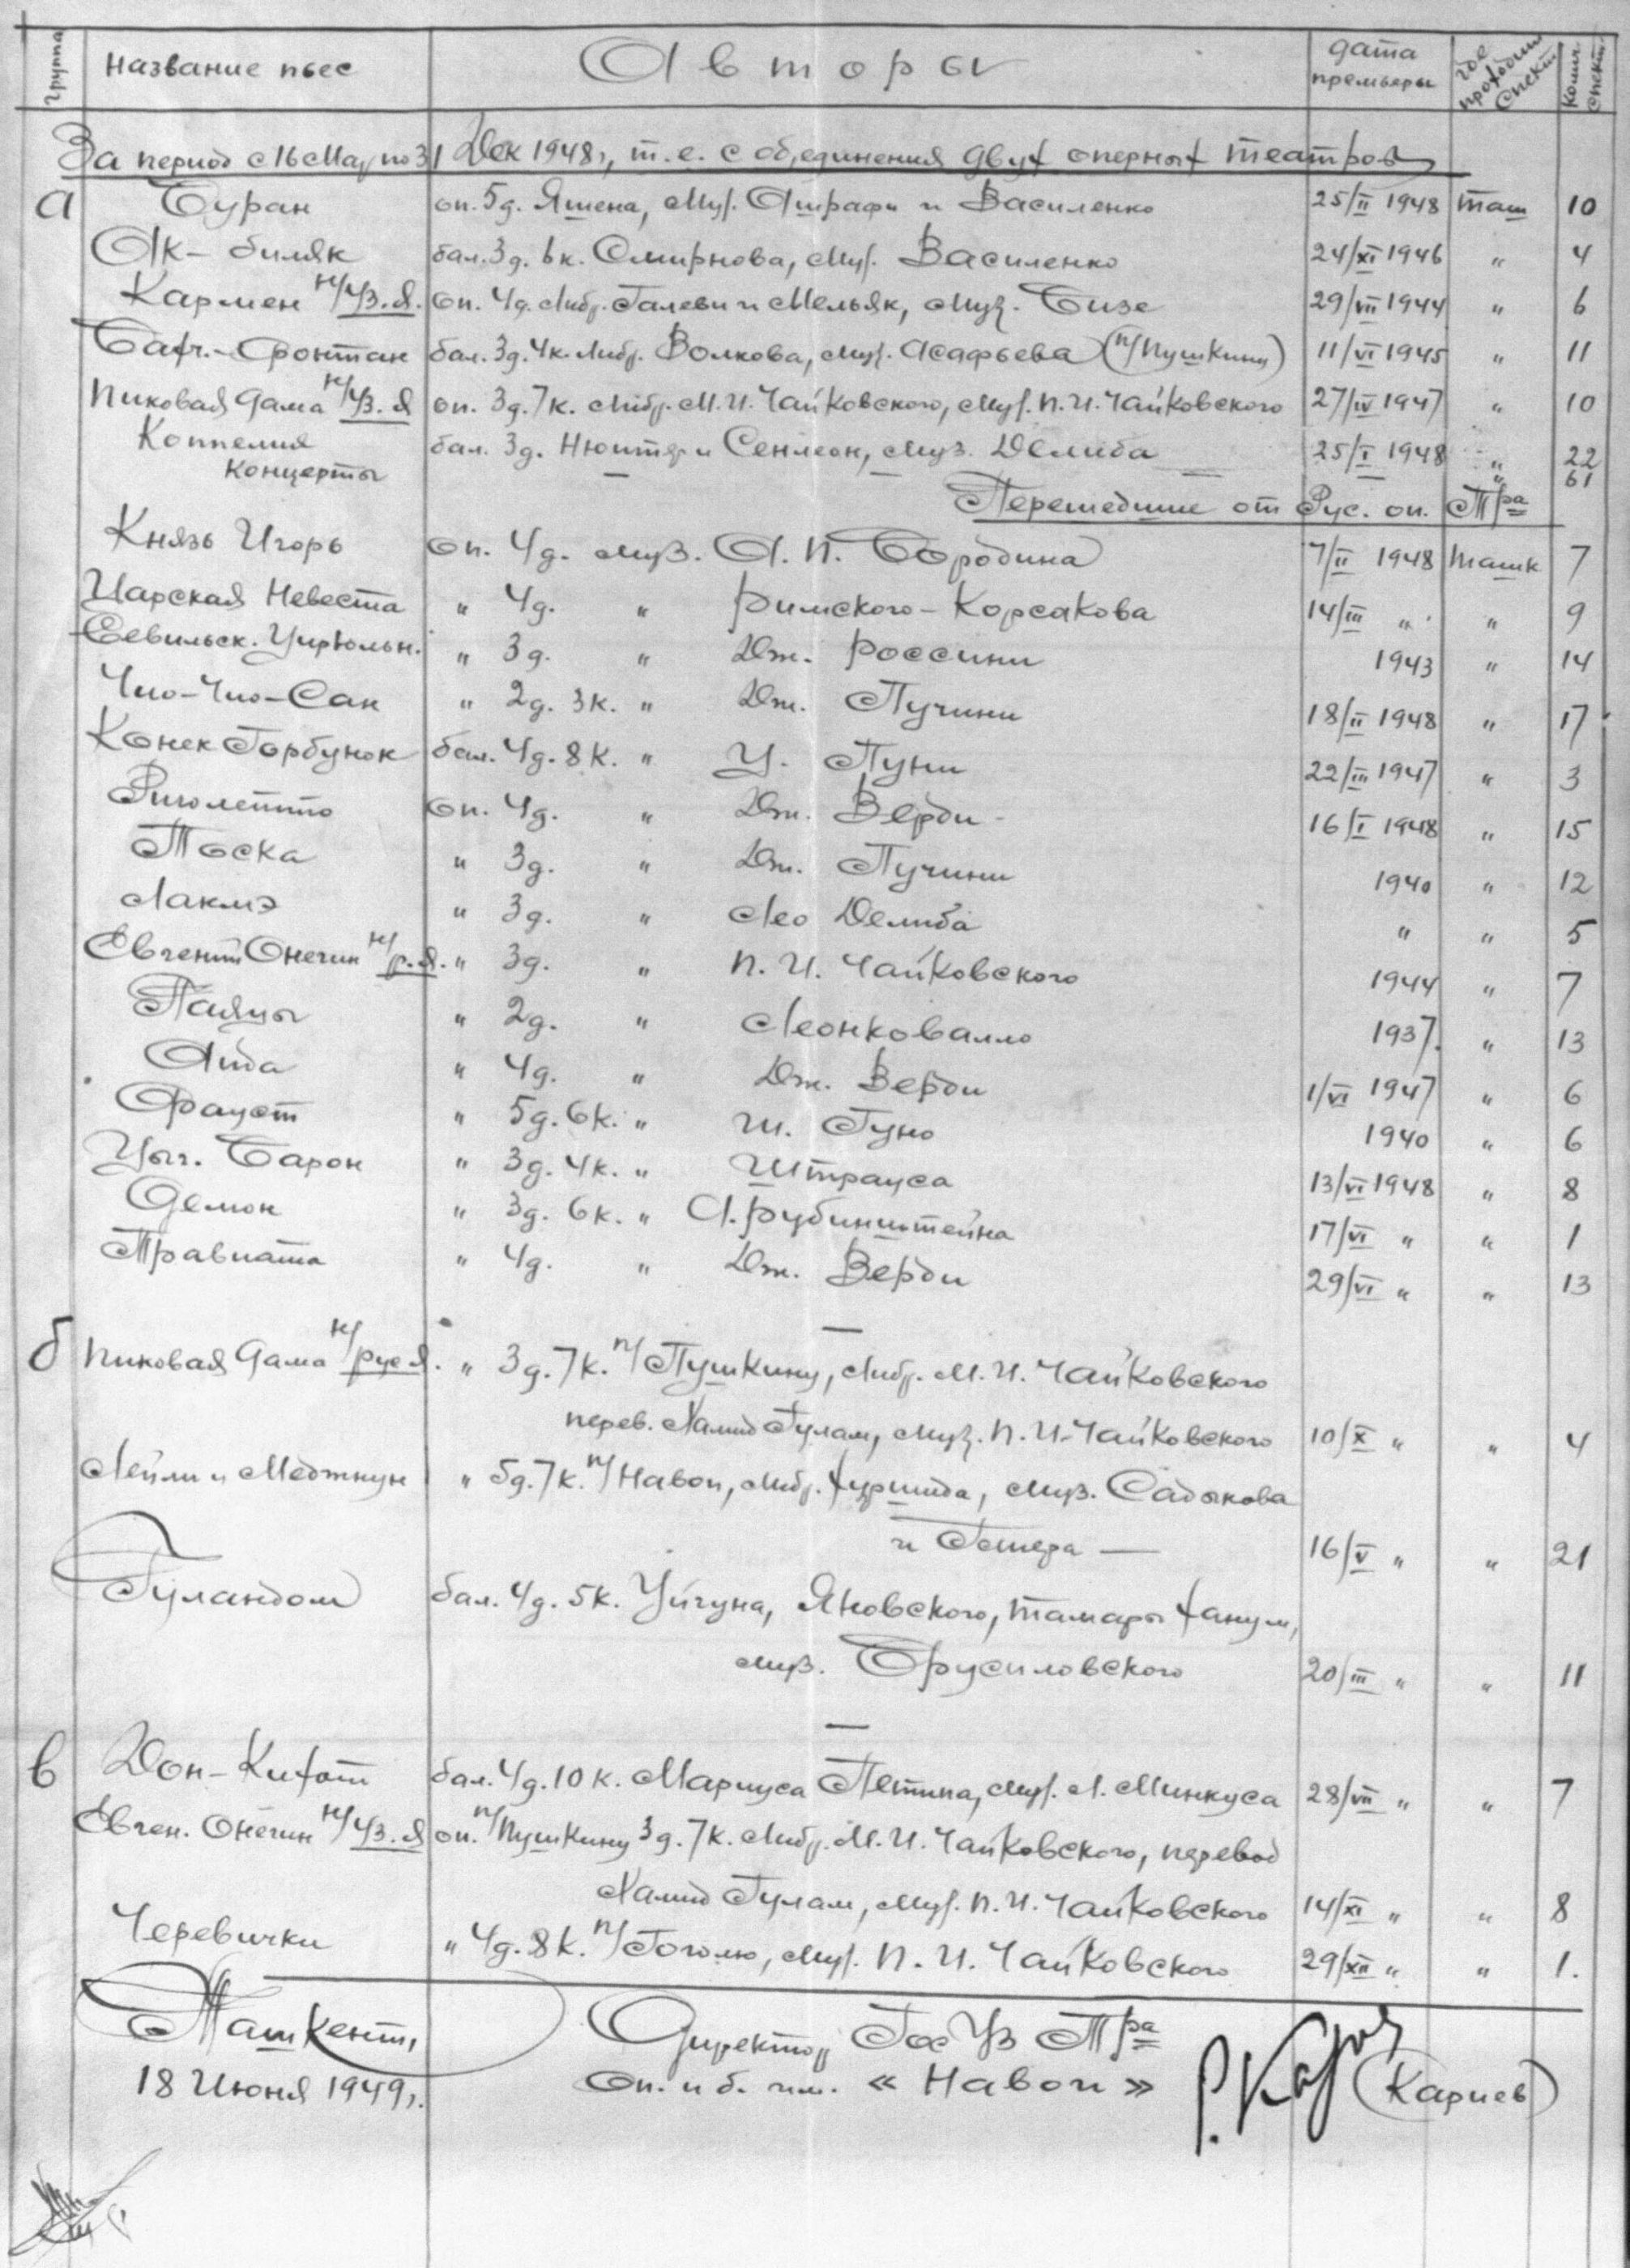 группа Название пьес Авторы дата премьеры где проходили спект. колич. спект.
За период с 16 мая по 31 Дек 1948 г, т.е. с объединения двух оперных театров
а Буран оп. 5д. Яшена, муз. Ашрафи и Василенко 25/II 1948 Таш 10
Ак-биляк бал. 3д. 6к. Смирнова, муз. Василенко 24/XI 1946 " 4
Кармен н/Уз.я. оп. 4д. либр. Галеви и Мельяк, муз. Бизе 29/VII 1944 " 6
Бахч.-Фонтан бал. 3д. 4к. либр. Волкова, муз. Асафьева (п/Пушкину) 11/VI 1945 " 11
Пиковая Дама н/Уз.я оп. 3д. 7к. либр. М.И. Чайковского, муз. П.И. Чайковского 27/IV 1947 " 10
Коппелия бал. 3д. Нюитер и Сенлеон, муз. Делиба 25/I 1948 " 22
Концерты — — — " 61
Перешедшие от Рус. оп. Тра
Князь Игорь оп. 4д. муз. А.П. Бородина 7/II 1948 Ташк 7
Царская Невеста " 4д. " Римского-Корсакова 14/III " " 9
Севильск. Цирюльн. " 3д. " Дж. Россини 1943 " 14
Чио-Чио-Сан " 2д. 3к. " Дж. Пучини 18/II 1948 " 17
Конек Горбунок бал. 4д. 8к. " Ц. Пуни 22/III 1947 " 3
Риголетто оп. 4д. " Дж. Верди 16/I 1948 " 15
Тоска " 3д. " Дж. Пучини 1940 " 12
Лакмэ " 3д. " Лео Делиба " " 5
Евгений Онегин н/р.я. " 3д. " П.И. Чайковского 1944 " 7
Паяцы " 2д. " Леонковалло 1937. " 13
Аида " 4д. " Дж. Верди 1/VI 1947 " 6
Фауст " 5д. 6к. " Ш. Гуно 1940 " 6
Цыг. Барон " 3д. 4к. " Штрауса 13/VI 1948 " 8
Демон " 3д. 6к. " А. Рубинштейна 17/VI " " 1
Травиата " 4д. " Дж. Верди 29/VI " " 13
—
б Пиковая Дама н/рус.я. " 3д. 7к. п/Пушкину, либр. М.И. Чайковского
перев. Хамид Гулам, муз. П.И. Чайковского 10/X " " 4
Лейли и Меджнун " 5д. 7к. п/Навои, либр. Хуршида, муз. Садыкова
и Глиера — 16/V " " 21
Гуландом бал. 4д. 5к. Уйгуна, Яновского, Тамары Ханум,
муз. Брусиловского 20/III " " 11
—
в Дон-Кихот бал. 4д. 10к. Мариуса Петипа, муз. Л. Минкуса 28/VII " " 7
Евген. Онегин н/Уз.я оп. п/Пушкину 3д. 7к. либр. М.И. Чайковского, перевод
Хамид Гулам, муз. П.И. Чайковского 14/XI " " 8
Черевички " 4д. 8к. п/Гоголю, муз. П.И. Чайковского 29/XII " " 1.
Ташкент, Директор Гос Уз Тра
18 Июня 1949 г. Оп. и б. им. « Навои » Р. Кари (Кариев)